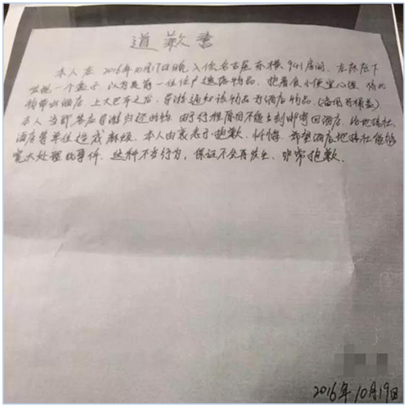 道歉书
本人在2016年10月17日晚入住名古屋东横941房间，在床底下
发现一个盖子，以为是前一位住户遗落物品，抱着贪小便宜心理，将此
物带出酒店，上大巴车之后，导游通知该物品为酒店物品。（备用马桶盖）
本人当即答应导游归还此物，由于行程原因不能立刻邮寄回酒店，给地接社，
酒店等单位造成麻烦，本人由衷表示抱歉，忏悔，希望酒店地接社能够
宽大处理此事件，这种不当行为，保证不会再发生，非常抱歉。
2016年10月19日